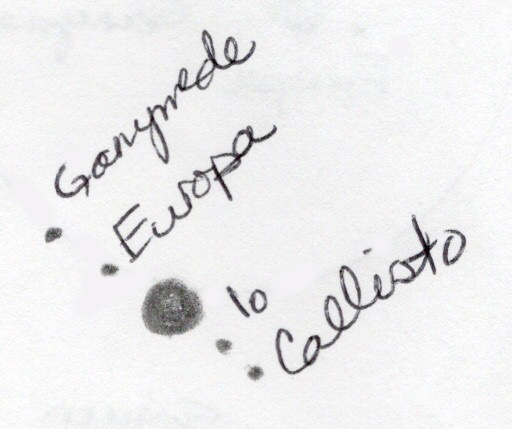 Ganymede
Europa
Io
Callisto